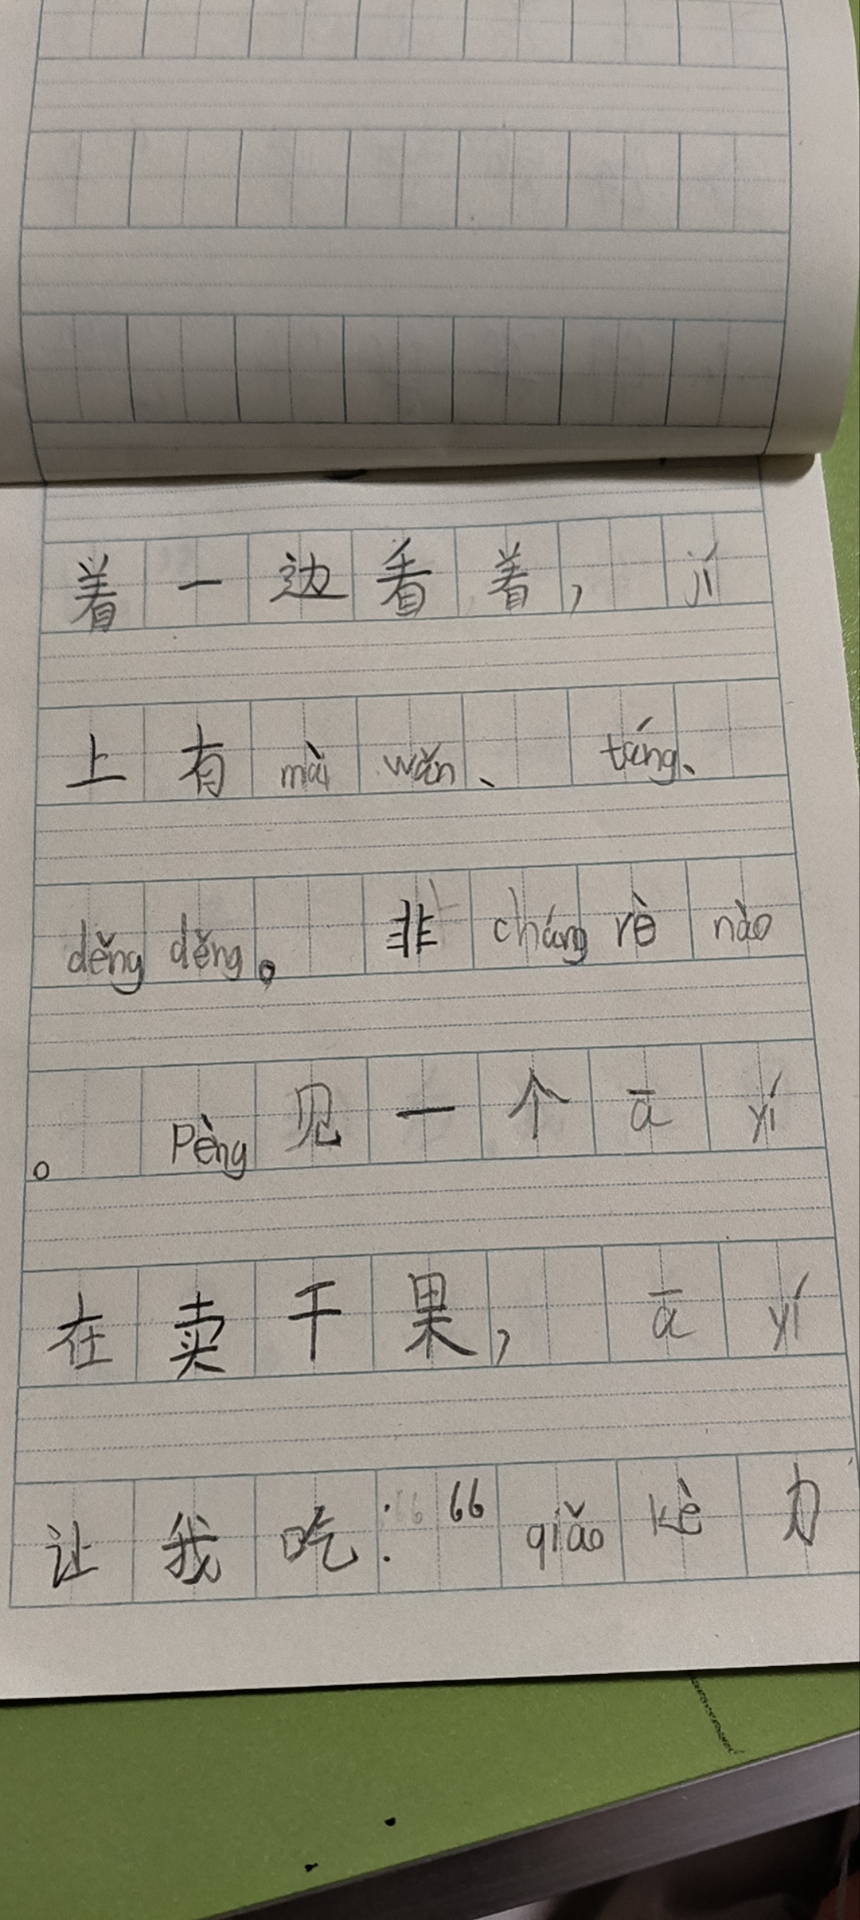 着一边看着，jí
上有mài wǎn、táng、
děng děng。非cháng rè nào
。Pèng见一个ā yí
在卖干果，ā yí
让我吃：“qiǎo kè力